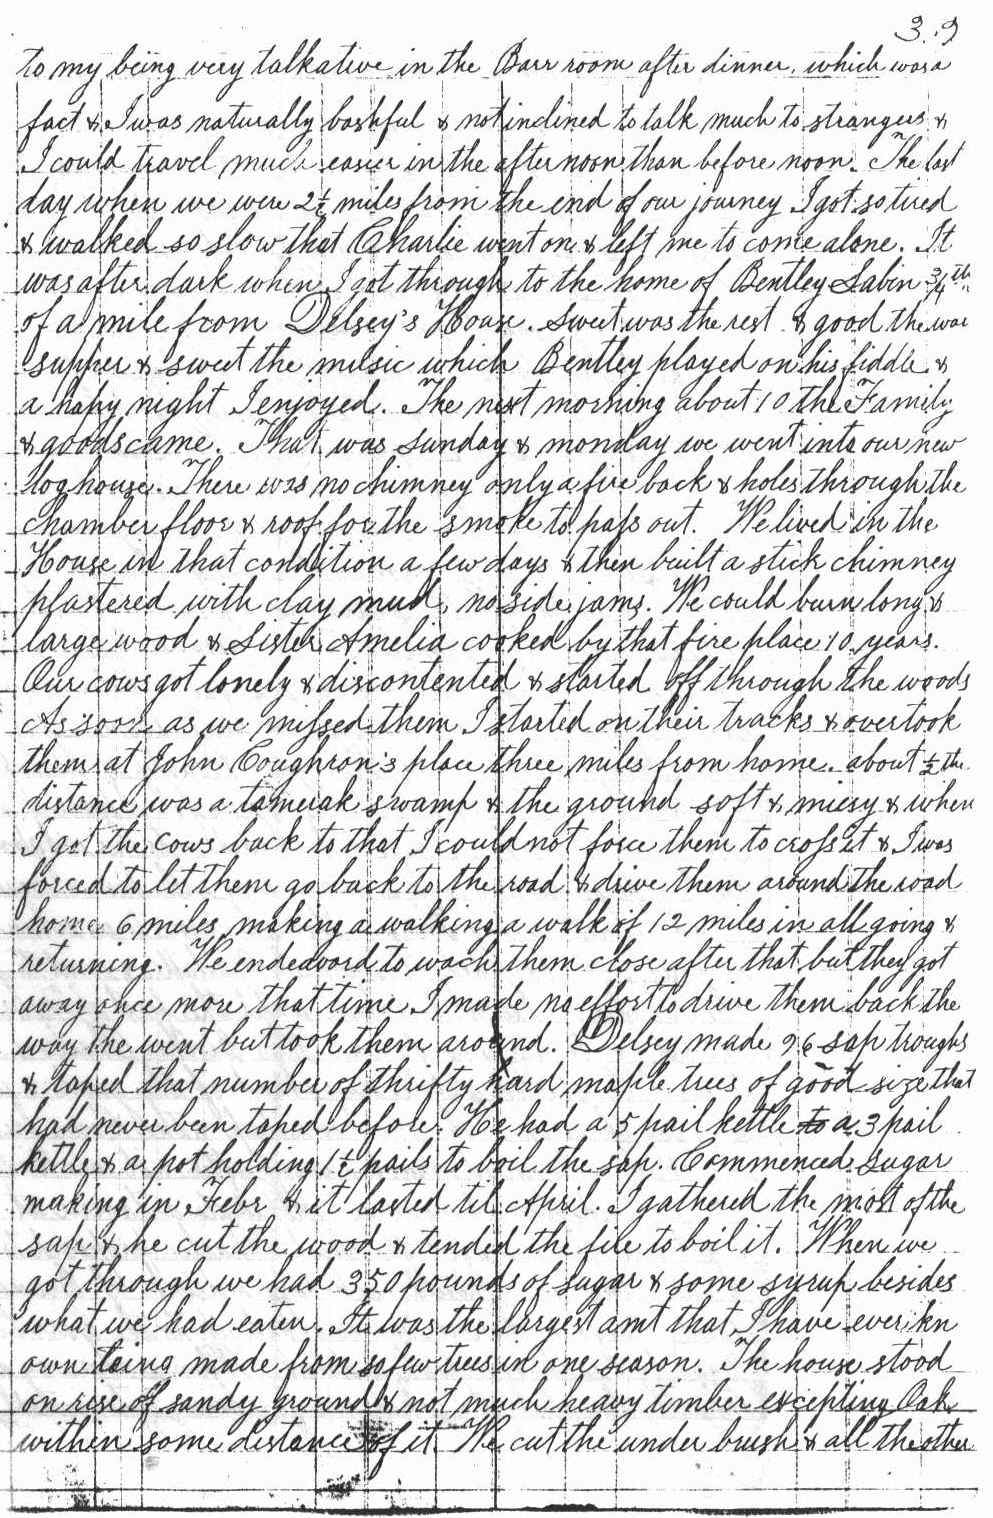 3.9
to my being very talkative in the Barr room after dinner, which was a
fact & I was naturally bashful & not inclined to talk much to strangers &
I could travel much easier in the afternoon than before noon. The last
day when we were 2½ miles from the end of our journey I got so tired
& walked so slow that Charlie went on & left me to come alone. It
was after dark when I got through to the home of Bentley Sabin 3/4th
of a mile from Delsey's House. Sweet was the rest & good the
supper & sweet the music which Bentley played on his fiddle &
a happy night I enjoyed. The next morning about 10 the Family
& goods came. That was Sunday & monday we went into our new
log house. There was no chimney only a fire back & holes through the
chamber floor & roof for the smoke to pass out. We lived in the
House in that condition a few days & then built a stick chimney
plastered with clay mud, no side jams. We could burn long &
large wood & Sister Amelia cooked by that fire place 10 years.
Our cows got lonely & discontented & started off through the woods
As soon as we missed them I started on their tracks & overtook
them at John Coughron's place three miles from home. about ½ the
distance was a tamerak swamp & the ground soft & miery & when
I got the cows back to that I could not force them to cross it & I was
forced to let them go back to the road & drive them around the road
home 6 miles making a walking a walk of 12 miles in all going &
returning. We endeavord to wach them close after that but they got
away once more that time I made no effort to drive them back the
way the went but took them around. Delsey made 96 sap troughs
& taped that number of thrifty hard maple trees of good size that
had never been taped before. He had a 5 pail kettle to a 3 pail
kettle & a pot holding 1½ pails to boil the sap. Commenced sugar
making in Febr & it lasted til April. I gathered the most of the
sap & he cut the wood & tended the fire to boil it. When we
got through we had 350 pounds of sugar & some syrup besides
what we had eaten. It was the largest amt that I have ever kn
own being made from so few trees in one season. The house stood
on rise of sandy ground & not much heavy timber excepting Oak
within some distance of it. We cut the under brush & all the other